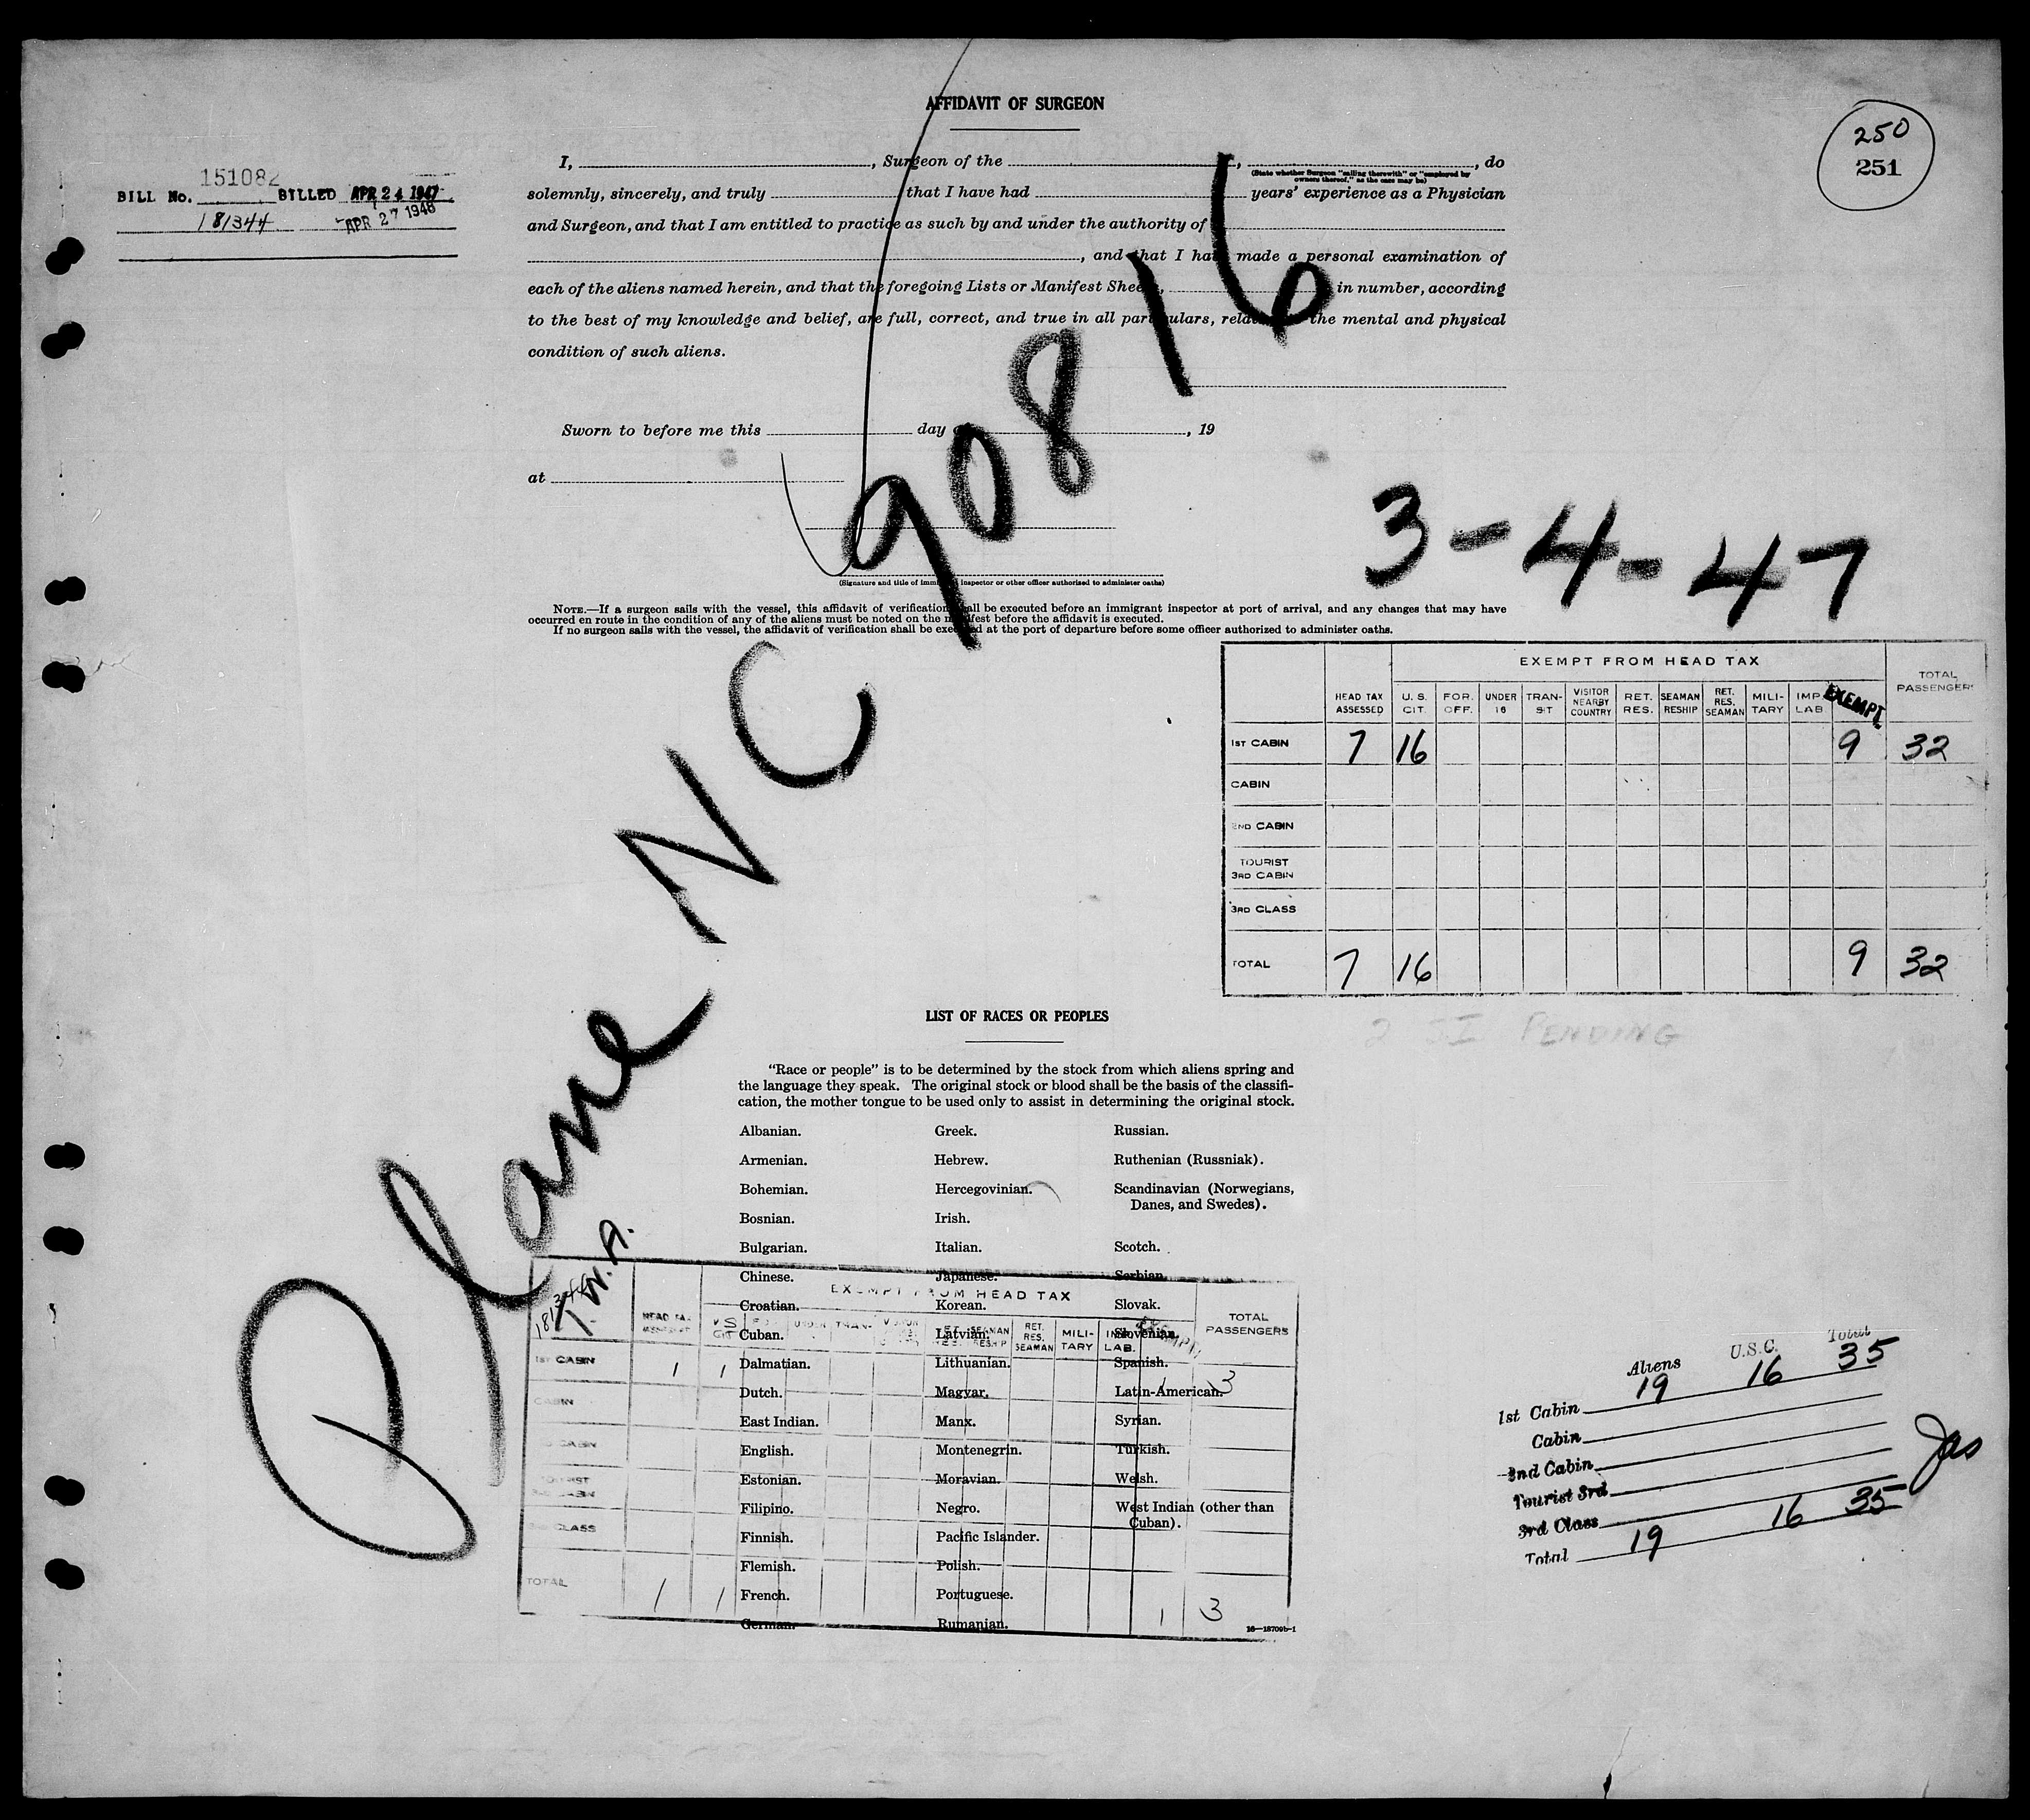 AFFIDAVIT OF SURGEON
250
251
BILL No. 151082 BILLED APR 24 1947
181344 APR 27 1948
I, , Surgeon of the , , do
(State whether Surgeon "sailing therewith" or "employed by owners thereof," as the case may be)
solemnly, sincerely, and truly that I have had years' experience as a Physician
and Surgeon, and that I am entitled to practice as such by and under the authority of
, and that I have made a personal examination of
each of the aliens named herein, and that the foregoing Lists or Manifest Sheets, in number, according
to the best of my knowledge and belief, are full, correct, and true in all particulars, relative to the mental and physical
condition of such aliens.
Sworn to before me this day of , 19
at
(Signature and title of immigrant inspector or other officer authorized to administer oaths)
Plane NC 90816
3-4-47
T.W.A.
NOTE.—If a surgeon sails with the vessel, this affidavit of verification shall be executed before an immigrant inspector at port of arrival, and any changes that may have
occurred en route in the condition of any of the aliens must be noted on the manifest before the affidavit is executed.
If no surgeon sails with the vessel, the affidavit of verification shall be executed at the port of departure before some officer authorized to administer oaths.
EXEMPT FROM HEAD TAX
HEAD TAX ASSESSED U. S. CIT. FOR. OFF. UNDER 16 TRAN-SIT VISITOR NEARBY COUNTRY RET. RES. SEAMAN RESHIP RET. RES. SEAMAN MILI-TARY IMP LAB EXEMPT TOTAL PASSENGERS
1ST CABIN 7 16 9 32
CABIN
2ND CABIN
TOURIST
3RD CABIN
3RD CLASS
TOTAL 7 16 9 32
2 SI PENDING
LIST OF RACES OR PEOPLES
"Race or people" is to be determined by the stock from which aliens spring and
the language they speak. The original stock or blood shall be the basis of the classifi-
cation, the mother tongue to be used only to assist in determining the original stock.
Albanian. Greek. Russian.
Armenian. Hebrew. Ruthenian (Russniak).
Bohemian. Hercegovinian. Scandinavian (Norwegians,
Danes, and Swedes).
Bosnian. Irish.
Bulgarian. Italian. Scotch.
Chinese. Japanese. Serbian.
Croatian. Korean. Slovak.
Cuban. Latvian. Slovenian.
Dalmatian. Lithuanian. Spanish.
Dutch. Magyar. Latin-American.
East Indian. Manx. Syrian.
English. Montenegrin. Turkish.
Estonian. Moravian. Welsh.
Filipino. Negro. West Indian (other than
Cuban).
Finnish. Pacific Islander.
Flemish. Polish.
French. Portuguese.
German. Rumanian.
16—18709b-1
181344
EXEMPT FROM HEAD TAX
HEAD TAX U S CIT UNDER TRAN- RET. SEAMAN RESHIP RET. RES. SEAMAN MILI-TARY IMP LAB. EXEMPT TOTAL PASSENGERS
1ST CABIN 1 1 1 3
CABIN
CABIN
TOURIST
CABIN
CLASS
TOTAL 1 1 1 3
Aliens U.S.C. Total
1st Cabin 19 16 35
Cabin
2nd Cabin
Tourist 3rd
3rd Class
Total 19 16 35
Jas